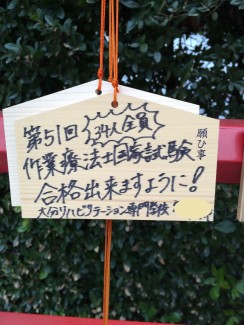 第51回
34人全員
作業療法士国家試験
合格出来ますように!
大分リハビリテーション専門学校!
願ひ事